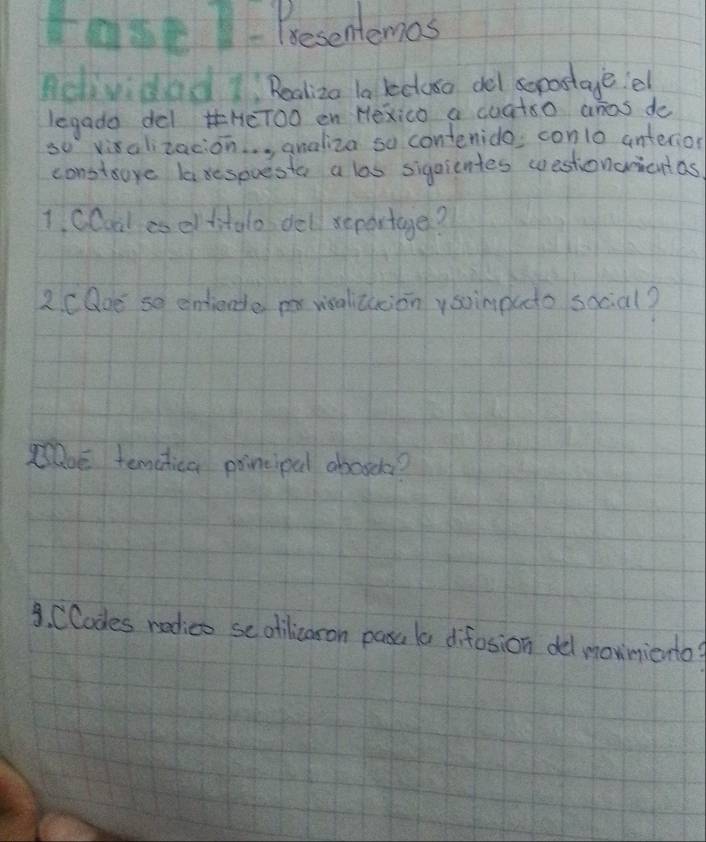 Fase 1 - Presentemos
Actividad 1: Realiza la lectura del reportaje: el
legado del #MeToo en México a cuatro años de
su viralización..., analiza su contenido; con lo anterior
construye la respuesta a los siguientes cuestionamientos.
1. ¿Cuál es el título del reportage?
2. ¿Qué se entiende por viralización y su impacto social?
¿Qué temática principal aborda?
3. ¿Cuáles medios se utilizaron para la difusión del movimiento?